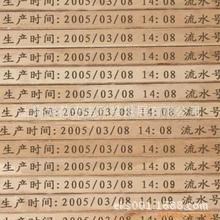 生产时间:2005/03/08 14:08 流水号
生产时间:2005/03/08 14:08 流水号
生产时间:2005/03/08 14:08 流水号
生产时间:2005/03/08 14:08 流水号
生产时间:2005/03/08 14:08 流水号
生产时间:2005/03/08 14:08 流水号
生产时间:2005/03/08 14:08 流水号
生产时间:2005/03/08 14:08 流水号
生产时间:2005/03/08 14:08 流水号
生产时间:2005/03/08 14:08 流水号
生产时间:2005/03/08 14:08 流水号